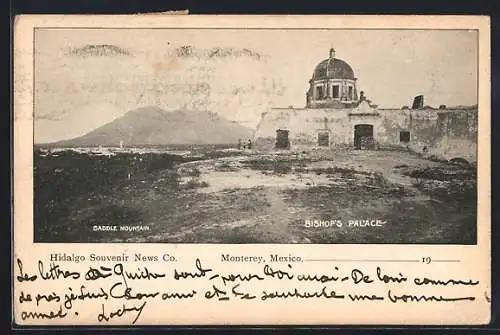 SADDLE MOUNTAIN.
BISHOP'S PALACE
Hidalgo Souvenir News Co. Monterey, Mexico, 19
Les lettres de Quito sont pour De loin comme
de près je suis ton ami et te souhaite une bonne
année.